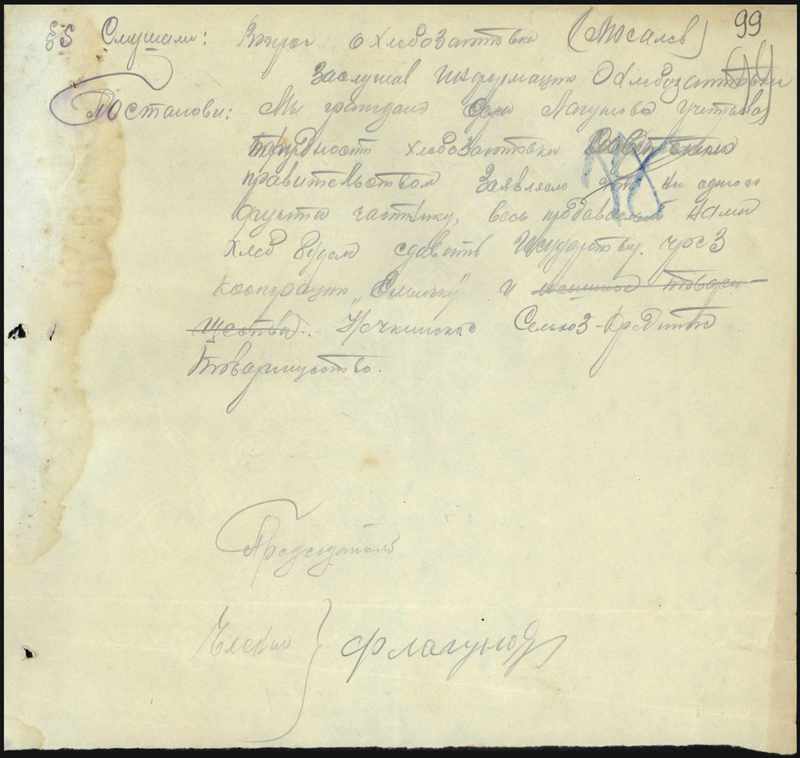 99
§5 Слушали: Вопрос о хлебозаготовки (Мосалев)
Заслушав информацию о хлебозаготовки
Постанови: Мы граждане Села Лагуново учитывая
трудность хлебозаготовки
правительством Заявляем что ни одного
фунта частнику, весь продаваемый нами
хлеб будем сдавать Государству. чрез
кооперацию „Смычку" и местное товари-
щество. Нечкинское Сельхоз-Кредитное
товарищество.
Председатель
Члены } ФЛагунов